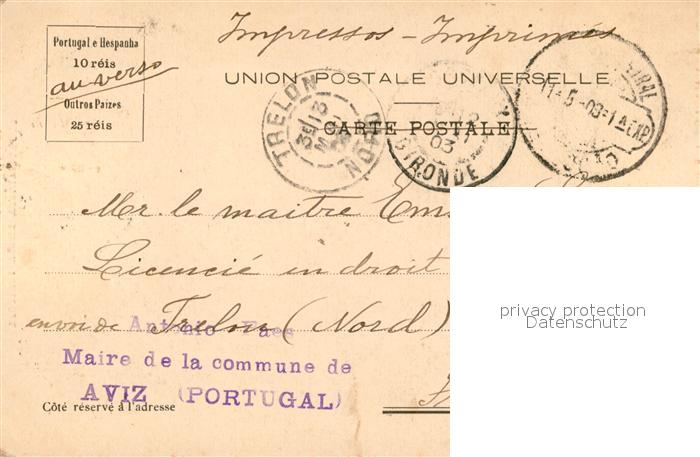 Impressos - Imprimés
Portugal e Hespanha
10 réis
au verso
Outros Paizes
25 réis
UNION POSTALE UNIVERSELLE
CARTE POSTALE
TRELON
13
MAI
NORD
03
GIRONDE
11-5-03-1 A EXP
Mr. le maitre
Licencié en droit
envoi de Trelon (Nord)
Antonio Paes
Maire de la commune de
AVIZ (PORTUGAL)
Côté réservé à l'adresse
privacy protection
Datenschutz